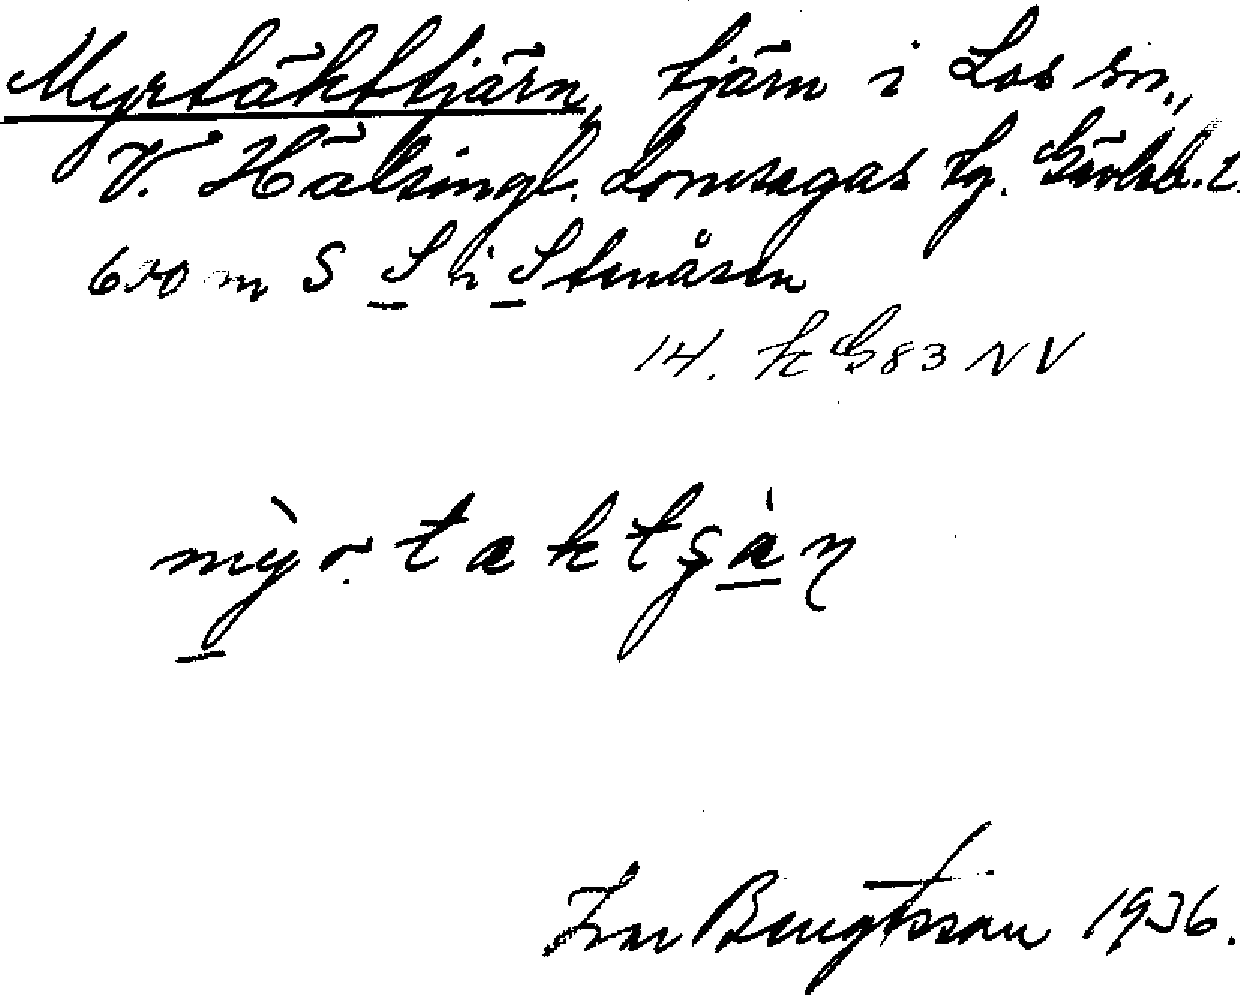 Myrtäkttjärn, tjärn i Los sn.,
V. Hälsingl. domsagas tg. Gävleb. l.
650 m S S i Stenåsen
14. k G83 NV
mỳr.taktʂàn
Ivar Bengtsson 1936.